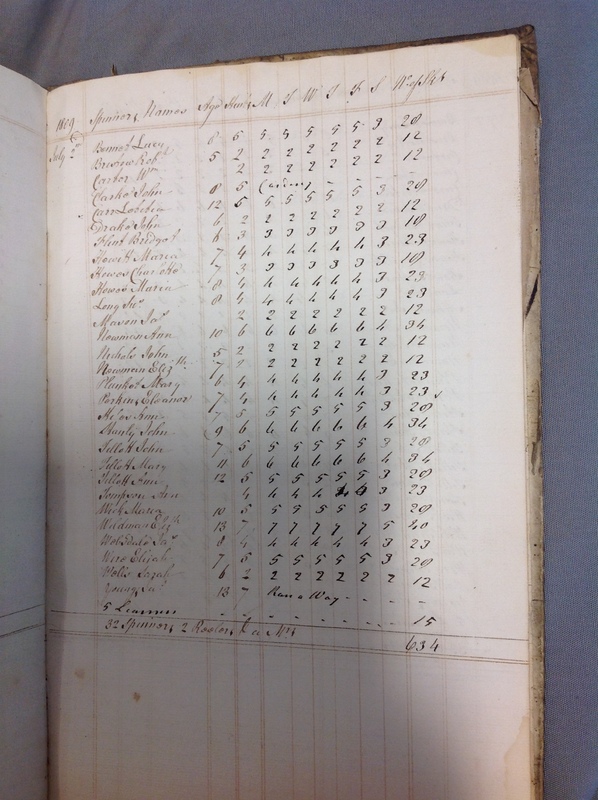 1809 Spinners Names Age Stint M T W T F S No of Sks
July 2d Bennet Lucy 8 5 5 5 5 5 5 3 28
Bristow Robt 5 2 2 2 2 2 2 2 12
Carter Wm 2 2 2 2 2 2 2 12
Clarke John 8 5 - - -
Carr Letitia 12 5 5 5 5 5 5 3 28
Drake John 6 2 2 2 2 2 2 2 12
Flint Bridget 6 3 3 3 3 3 3 3 18
Howett Maria 7 4 4 4 4 4 4 3 23
Howes Charlotte 7 3 3 3 3 3 3 3 18
Howes Maria 8 4 4 4 4 4 4 3 23
Long 8 4 4 4 4 4 4 3 23
Mason Jas 2 2 2 2 2 2 2 12
Newman Ann 10 6 6 6 6 6 6 4 34
Nichols John 5 2 2 2 2 2 2 2 12
Newman Elizth 7 2 2 2 2 2 2 2 12
Plunket Mary 6 4 4 4 4 4 4 3 23
Perkins Eleanor 7 4 4 4 4 4 4 3 23
Ann 7 5 5 5 5 5 5 3 28
John 9 6 6 6 6 6 6 4 34
Tillott John 7 5 5 5 5 5 5 3 28
Tillott Mary 11 6 6 6 6 6 6 4 34
Tillott Ann 12 5 5 5 5 5 5 3 28
Tompson Ann 4 4 4 4 3 23
Maria 10 5 5 5 5 5 5 3 28
Wildman Elizth 13 7 7 7 7 7 7 5 40
Jas 8 4 4 4 4 4 4 3 23
Elijah 7 5 5 5 5 5 5 3 28
Sarah 6 2 2 2 2 2 2 2 12
Young 13 7 Run a Way - - -
5 Learners - - - - - - 15
32 Spinners 2 634